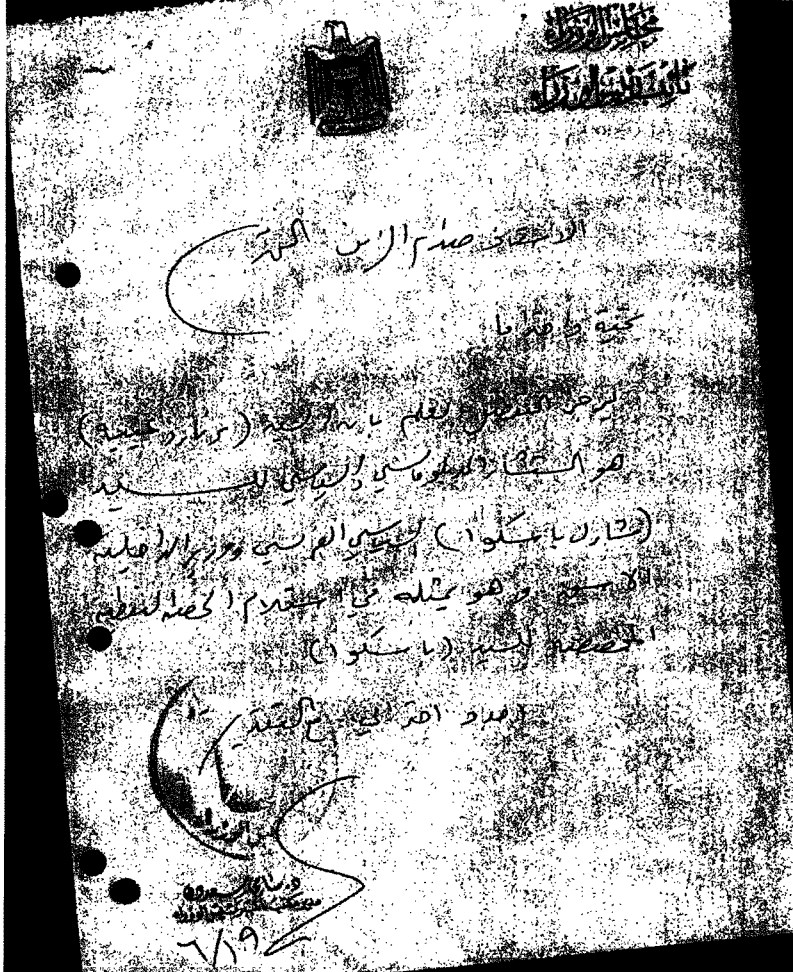 مجلس الوزراء
نائب رئيس الوزراء
الاستاذ صدام الزبن المحترم
تحية واحتراما
ليرجى التفضل بالعلم بان السيد (برنارد غييه)
هو المستشار الدبلوماسي والسياسي للسيد
(شارل باسكوا) السياسي الفرنسي ووزير الداخلية
الاسبق وهو يمثله في استلام الحصة النفطية
المخصصة للسيد (باسكوا)
احترامي مع التقدير
٦/١٩